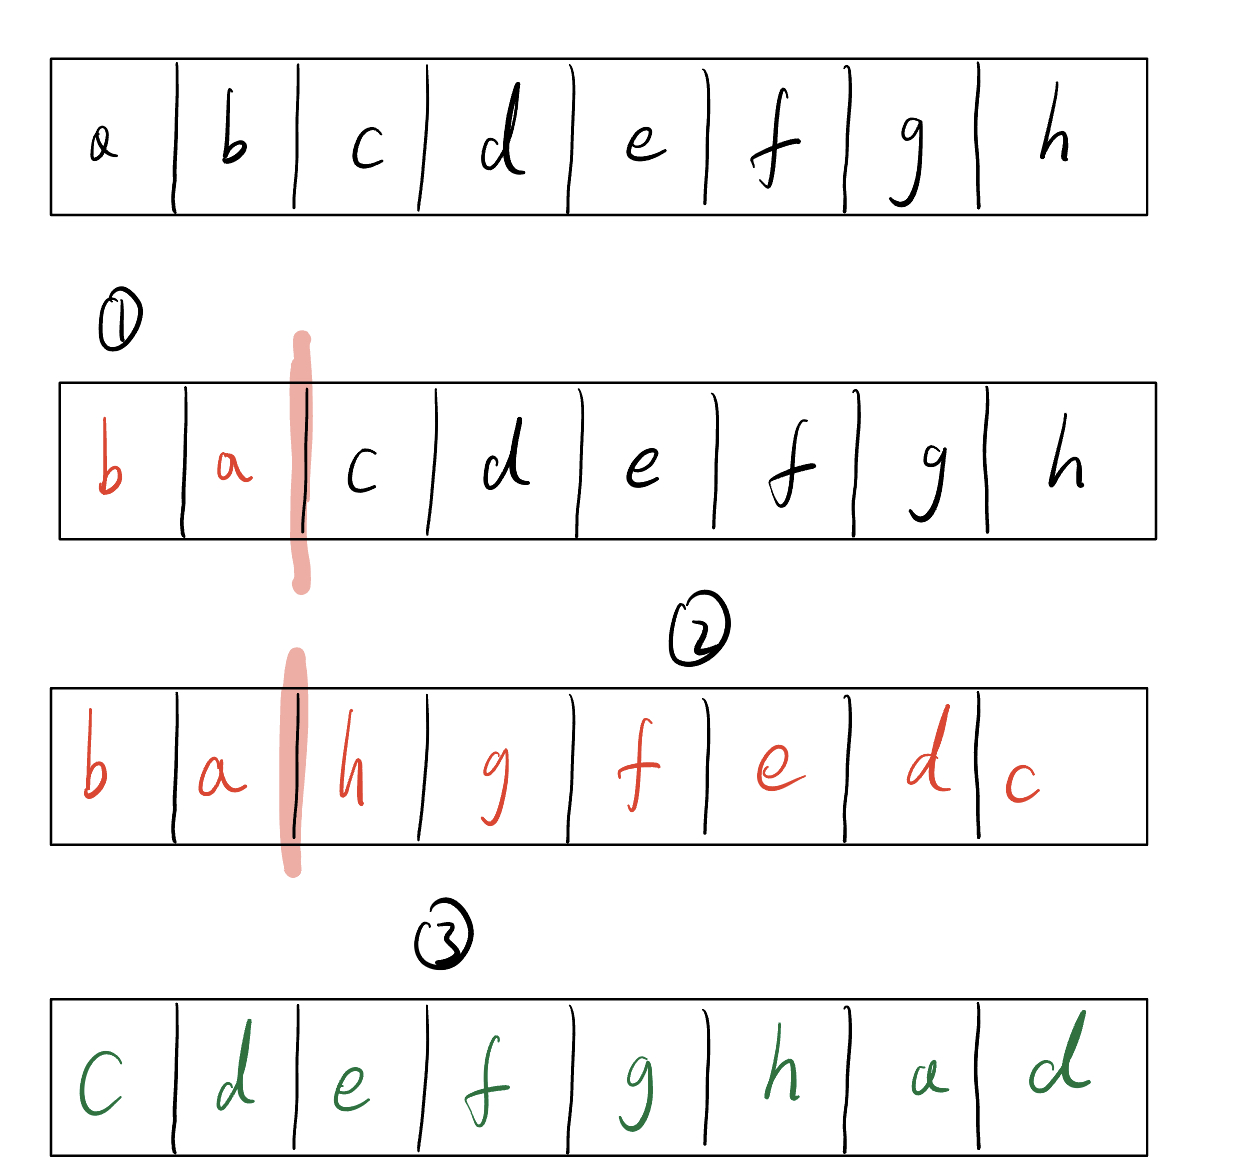 a b c d e f g h
①
b a c d e f g h
②
b a h g f e d c
③
c d e f g h a d